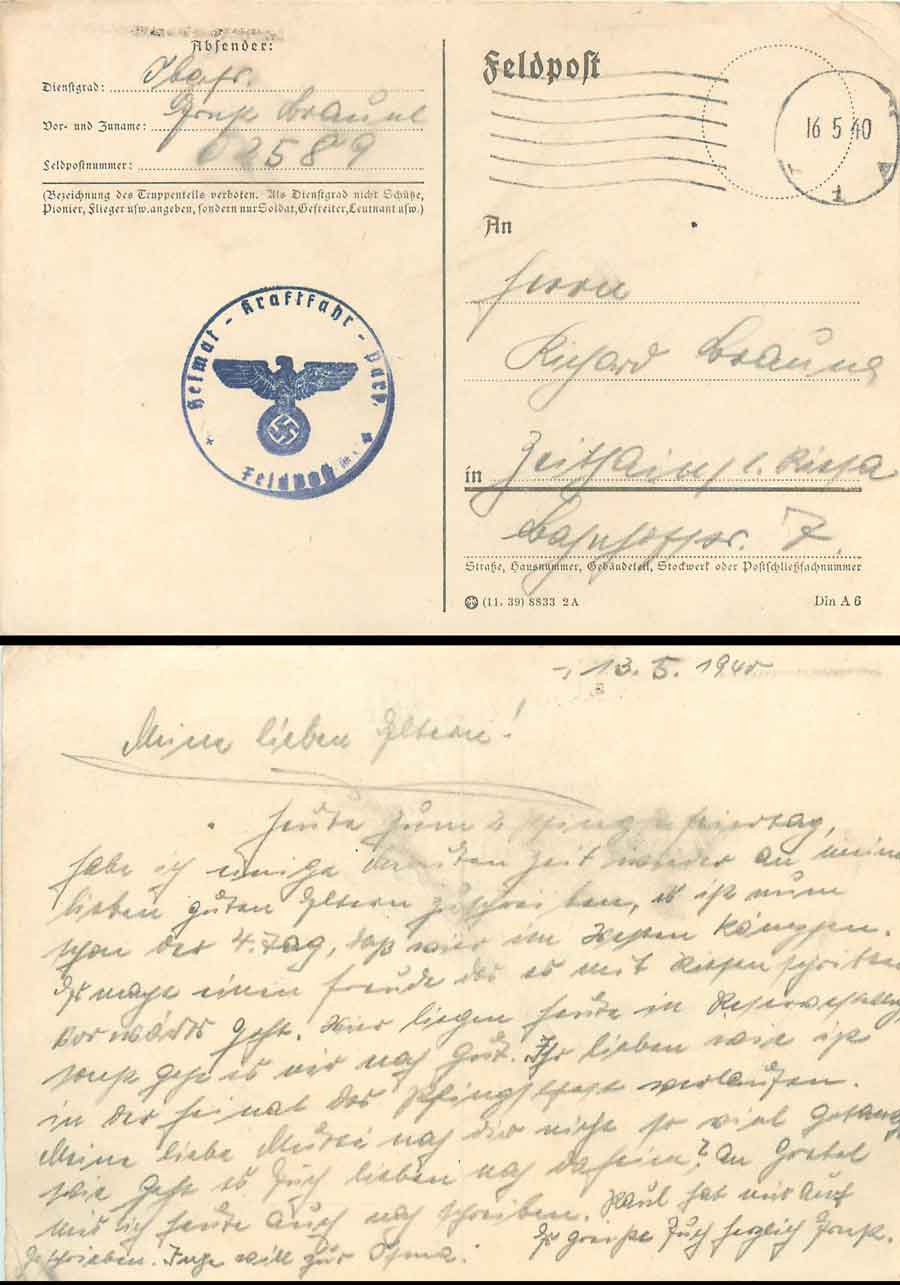 Absender:
Dienstgrad: Obgfr.
Vor- und Zuname: Ernst Braune
Feldpostnummer: 02589
(Bezeichnung des Truppenteils verboten. Als Dienstgrad nicht Schütze,
Pionier, Flieger usw. angeben, sondern nur Soldat, Gefreiter, Leutnant usw.)
Heimat - Kraftfahr - Park
Feldpost
Feldpost
16 5 40
1
An
Herrn
Richard Braune
in Zeithain b. Riesa
Bahnhofstr. 7.
Straße, Hausnummer, Gebäudeteil, Stockwerk oder Postschließfachnummer
(11. 39) 8833 2A
Din A 6
13. 5. 1940
Meine lieben Eltern!
Heute zum 2. Pfingstfeiertag,
habe ich einige Minuten Zeit wieder an meine
lieben guten Eltern zu schreiben, es ist nun
schon der 4. Tag, daß wir im Westen kämpfen.
Es macht einen Freude das es mit Riesenschritten
vorwärts geht. Wir liegen heute in Reservestellung
sonst geht es mir noch gut. Ihr lieben wie ist
in der Heimat das Pfingstfest verlaufen.
Meine liebe Mutti mach dir nicht so viel Gedanken
wie geht es Euch lieben noch daheim? An Gretel
will ich heute auch noch schreiben. Paul hat mir auch
geschrieben. Inge will zur Oma.
Es grüßt Euch herzlich Ernst.